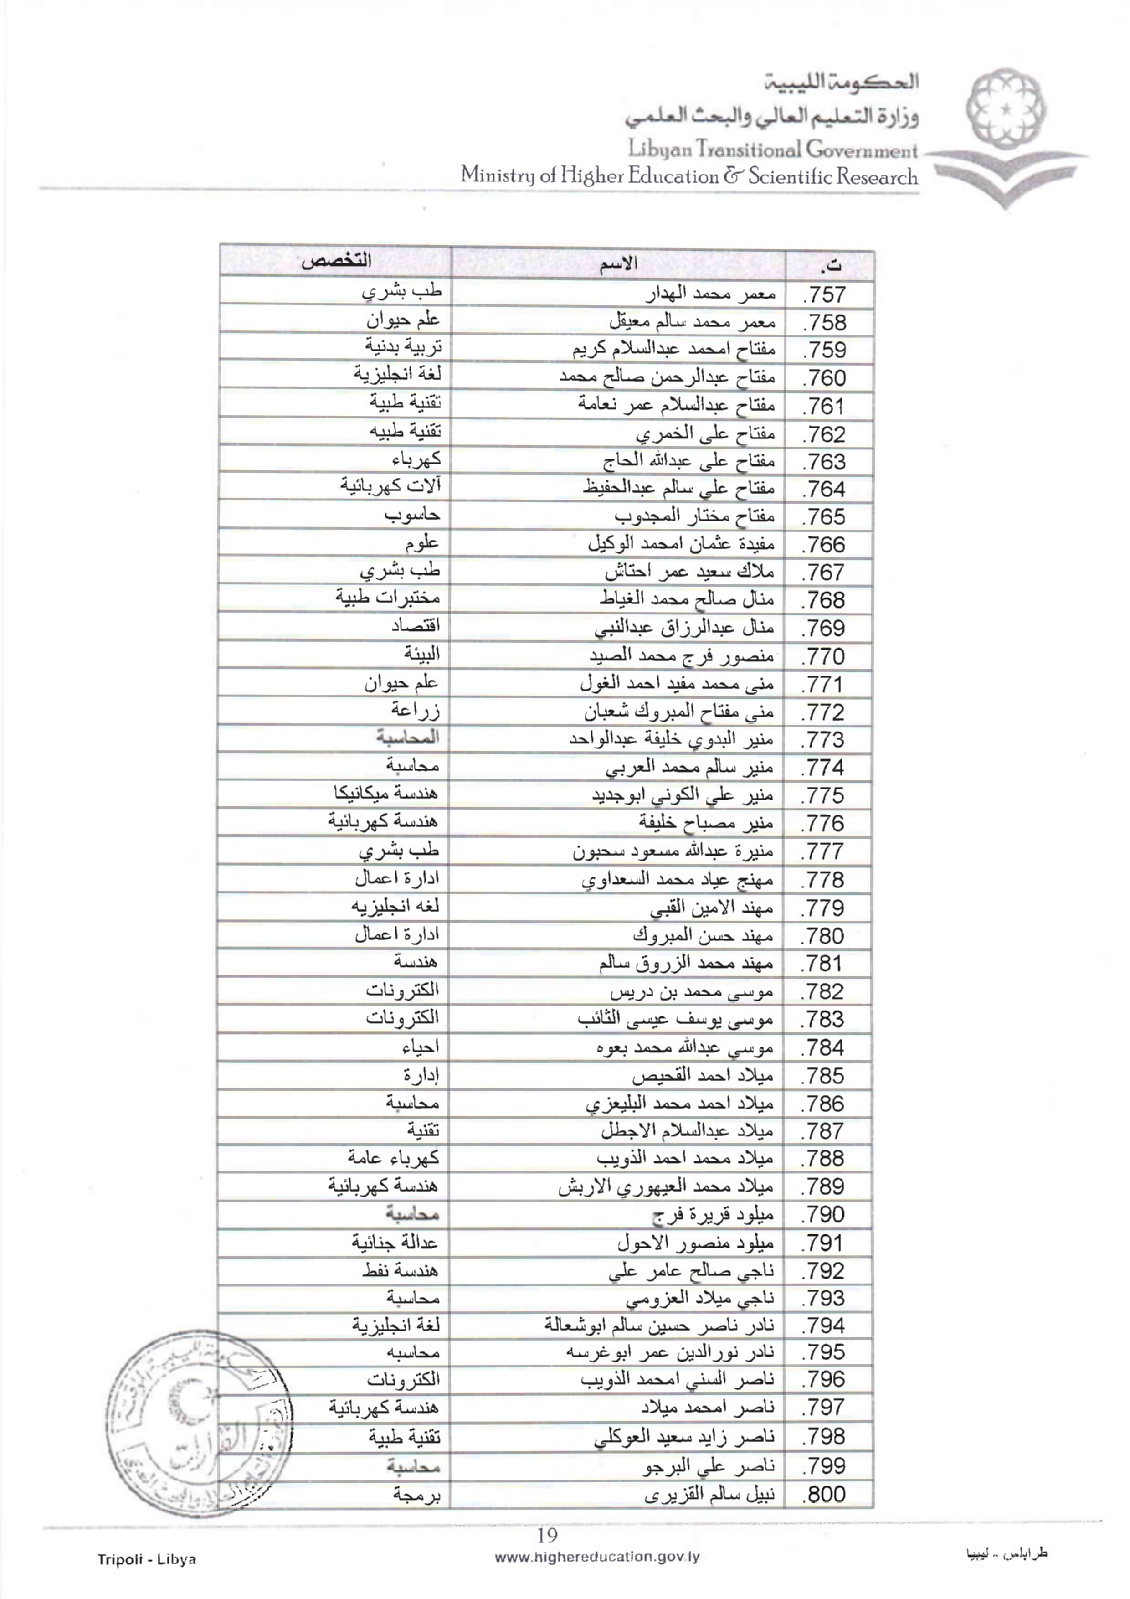 الحكومة الليبية
وزارة التعليم العالي والبحث العلمي
Libyan Transitional Government
Ministry of Higher Education & Scientific Research
ت. الاسم التخصص
757. معمر محمد الهدار طب بشري
758. معمر محمد سالم معيقل علم حيوان
759. مفتاح امحمد عبدالسلام كريم تربية بدنية
760. مفتاح عبدالرحمن صالح محمد لغة انجليزية
761. مفتاح عبدالسلام عمر نعامة تقنية طبية
762. مفتاح على الخمري تقنية طبيه
763. مفتاح على عبدالله الحاج كهرباء
764. مفتاح علي سالم عبدالحفيظ آلات كهربائية
765. مفتاح مختار المجدوب حاسوب
766. مفيدة عثمان امحمد الوكيل علوم
767. ملاك سعيد عمر احتاش طب بشري
768. منال صالح محمد الغياط مختبرات طبية
769. منال عبدالرزاق عبدالنبي اقتصاد
770. منصور فرج محمد الصيد البيئة
771. منى محمد مفيد احمد الغول علم حيوان
772. منى مفتاح المبروك شعبان زراعة
773. منير البدوي خليفة عبدالواحد المحاسبة
774. منير سالم محمد العربي محاسبة
775. منير علي الكوني ابوجديد هندسة ميكانيكا
776. منير مصباح خليفة هندسة كهربائية
777. منيرة عبدالله مسعود سحبون طب بشري
778. مهنج عياد محمد السعداوي ادارة اعمال
779. مهند الامين القبي لغه انجليزيه
780. مهند حسن المبروك ادارة اعمال
781. مهند محمد الزروق سالم هندسة
782. موسى محمد بن دريس الكترونات
783. موسى يوسف عيسى الثائب الكترونات
784. موسي عبدالله محمد بعوه احياء
785. ميلاد احمد القحيص إدارة
786. ميلاد احمد محمد البليعزي محاسبة
787. ميلاد عبدالسلام الاجطل تقنية
788. ميلاد محمد احمد الذويب كهرباء عامة
789. ميلاد محمد العيهوري الاربش هندسة كهربائية
790. ميلود قريرة فرج محاسبة
791. ميلود منصور الاحول عدالة جنائية
792. ناجي صالح عامر علي هندسة نفط
793. ناجي ميلاد العزومي محاسبة
794. نادر ناصر حسين سالم ابوشعالة لغة انجليزية
795. نادر نورالدين عمر ابوغرسه محاسبه
796. ناصر السني امحمد الذويب الكترونات
797. ناصر امحمد ميلاد هندسة كهربائية
798. ناصر زايد سعيد العوكلي تقنية طبية
799. ناصر علي البرجو محاسبة
800. نبيل سالم القزيرى برمجة
19
Tripoli - Libya www.highereducation.gov.ly طرابلس - ليبيا